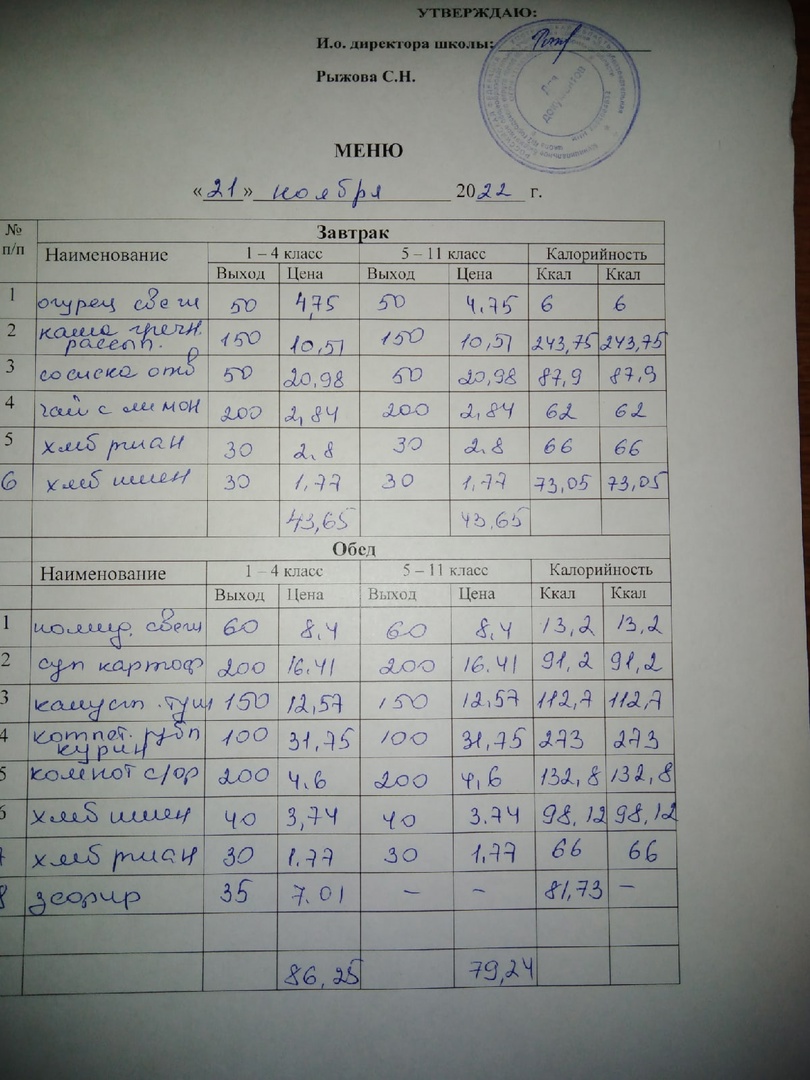 УТВЕРЖДАЮ:
И.о. директора школы:
Рыжова С.Н.
Для документов
МЕНЮ
« 21 » ноября 2022 г.
№ п/п Завтрак
Наименование 1 – 4 класс 5 – 11 класс Калорийность
Выход Цена Выход Цена Ккал Ккал
1 огурец свеш 50 4,75 50 4.75 6 6
2 каша гречн. рассып. 150 10,51 150 10,51 243,75 243,75
3 сосиска отв 50 20,98 50 20,98 87,9 87,9
4 чай с лимон 200 2,84 200 2,84 62 62
5 хлеб ржан 30 2.8 30 2.8 66 66
6 хлеб пшен 30 1,77 30 1,77 73,05 73,05
43,65 43,65
Обед
Наименование 1 – 4 класс 5 – 11 класс Калорийность
Выход Цена Выход Цена Ккал Ккал
1 помид. свеш 60 8,4 60 8,4 13,2 13,2
2 суп картоф 200 16.41 200 16.41 91,2 91,2
3 капуст. туш 150 12,57 150 12,57 112,7 112,7
4 котлет. руб курин 100 31,75 100 31,75 273 273
5 компот с/фр 200 4.6 200 4,6 132,8 132,8
6 хлеб пшен 40 3,74 40 3.74 98,12 98,12
7 хлеб ржан 30 1.77 30 1,77 66 66
8 зефир 35 7.01 – – 81,73 –
86,25 79,24